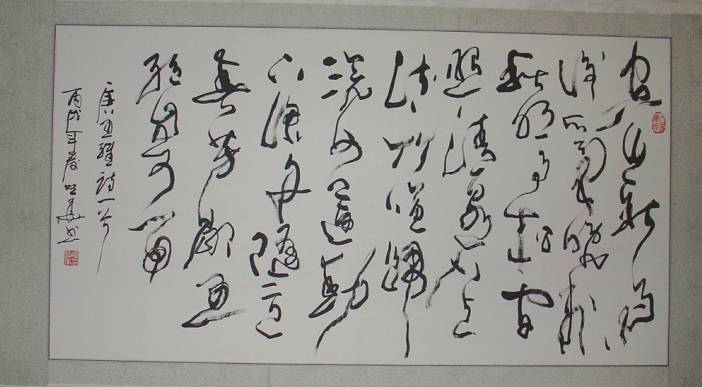 空山新雨
後天氣晚來
秋明月松間
照清泉石上
流竹喧歸
浣女蓮動
下漁舟隨意
春芳歇王
孫自可留
唐王維詩一首
丙戌年春书